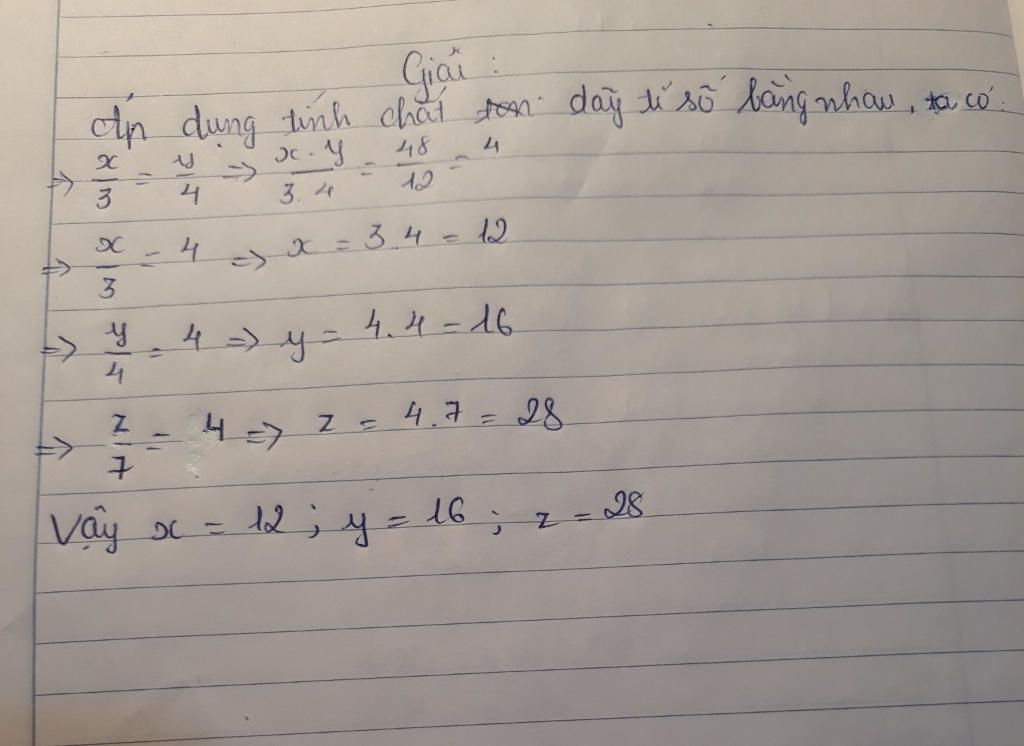 Giải :
Áp dụng tính chất dãy tỉ số bằng nhau, ta có:
=> x/3 = y/4 => x.y/3.4 = 48/12 = 4
=> x/3 = 4 => x = 3.4 = 12
=> y/4 = 4 => y = 4.4 = 16
=> z/7 = 4 => z = 4.7 = 28
Vậy x = 12 ; y = 16 ; z = 28